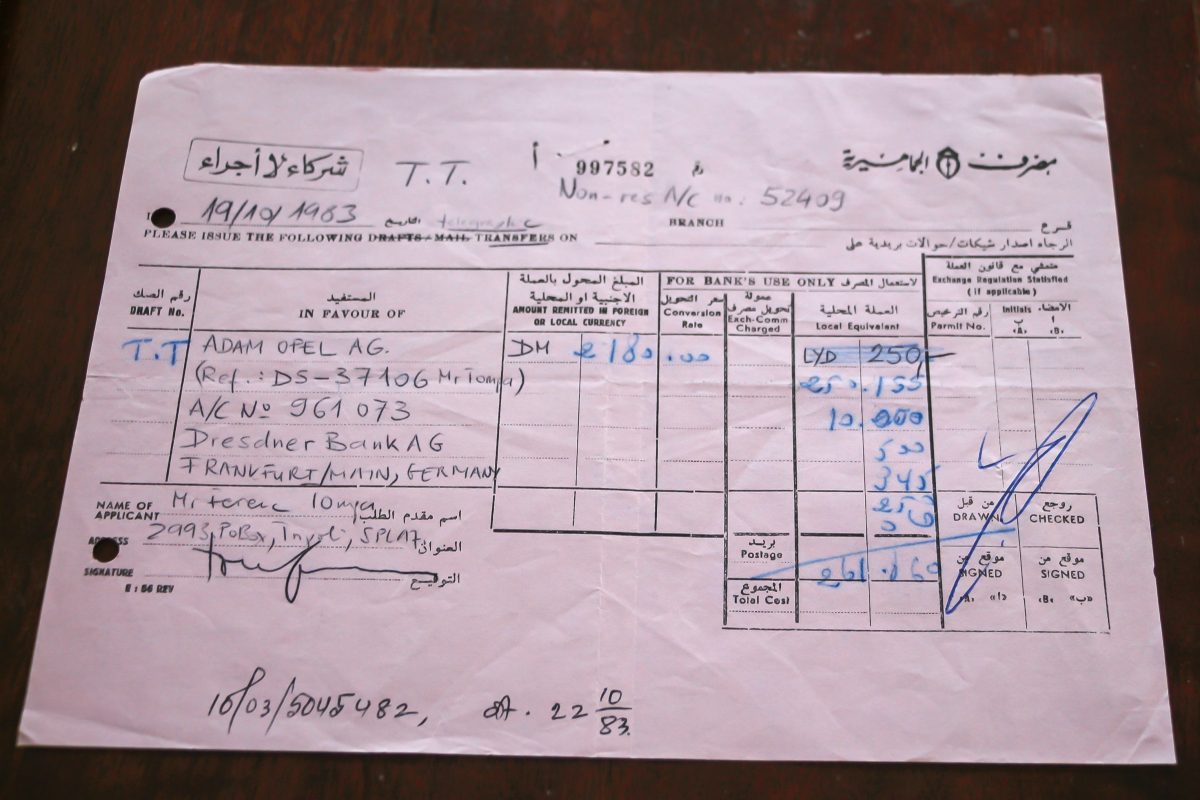 شركاء لا أجراء T.T. أ 997582 مصرف الجماهيرية
Non-res A/C no: 52409
19/10/1983 التاريخ telegraphic BRANCH فرع
PLEASE ISSUE THE FOLLOWING DRAFTS/MAIL TRANSFERS ON الرجاء اصدار شيكات/حوالات بريدية على
رقم الصك
DRAFT No.
المستفيد
IN FAVOUR OF
المبلغ المحول بالعملة
الاجنبية او المحلية
AMOUNT REMITTED IN FOREIGN
OR LOCAL CURRENCY
FOR BANK'S USE ONLY لاستعمال المصرف
سعر التحويل
Conversion
Rate
عمولة
تحويل مصرف
Exch-Comm
Charged
العملة المحلية
Local Equivalent
متمشي مع قانون العملة
Exchange Regulation Statisfied
(if applicable)
رقم الترخيص
Permit No.
Initials الامضاء
ب أ
«A» «B»
T.T ADAM OPEL AG. DM 2180.00 LYD 250,-
(Ref.: DS-37106 Mr Tompa) 250.155
A/C No 961 073 10.000
Dresdner Bank AG 500
FRANKFURT/MAIN, GERMANY 345
NAME OF
APPLICANT Mr Ferenc Tompa اسم مقدم الطلب
2993 PoBox, Tripoli, SPLAJ العنوان
SIGNATURE التوقيع
E : 56 REV
بريد
Postage
المجموع
Total Cost
من قبل
DRAWN
روجع
CHECKED
موقع من
SIGNED
«A» «أ»
موقع من
SIGNED
«B» «ب»
16/03/5045482, dt. 22 10/83.